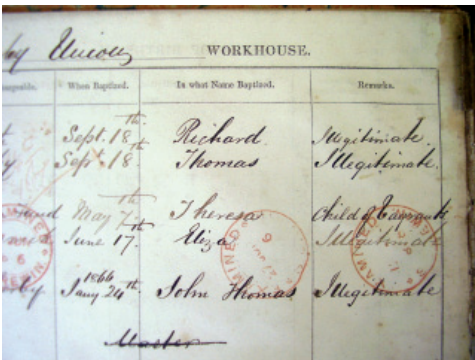 by Union WORKHOUSE.
When Baptized. In what Name Baptized. Remarks.
Sept. 18th Richard Illegitimate
Sep. 18th Thomas Illegitimate.
May 7th Theresa Child of
June 17th Eliza Illegitimate
1866
Jany 24th John Thomas Illegitimate
Master